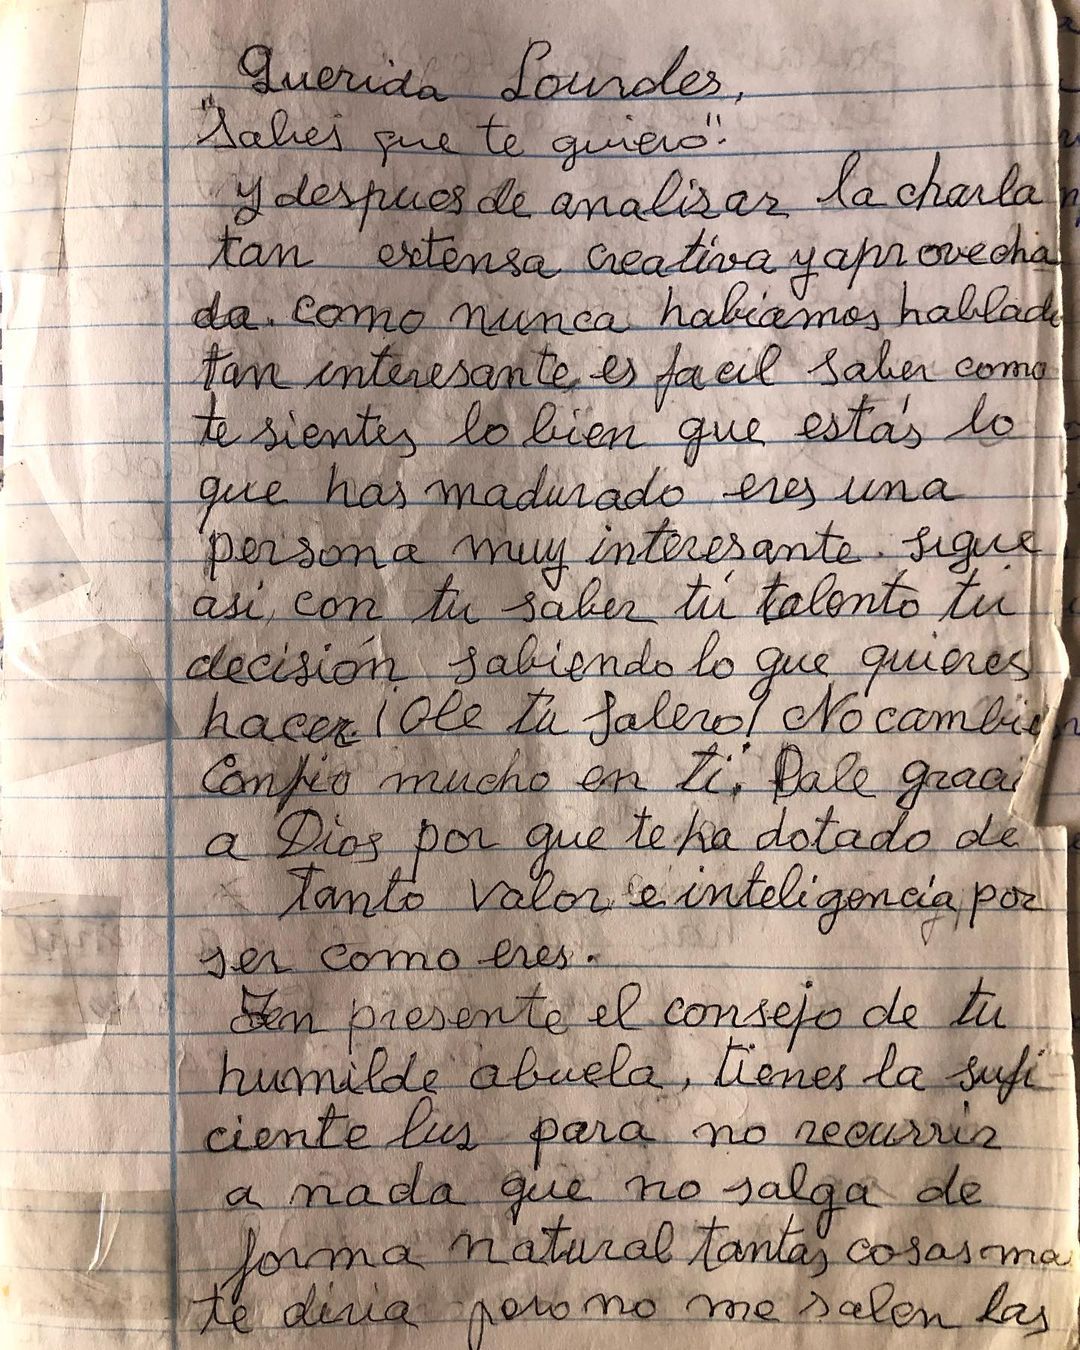 Querida Lourdes,
"Sabes que te quiero".
y despues de analisar la charla
tan extensa creativa y aprovecha
da. como nunca habiamos hablado
tan interesante, es facil saber como
te sientes, lo bien que estás lo
que has madurado eres una
persona muy interesante. sigue
así, con tu saber tú talento tú
decisión sabiendo lo que quieres
hacer. ¡Ole tu salero! No cambie
Confio mucho en ti. Dale graci
a Dios por que te ha dotado de
tanto valor, e inteligencia, por
ser como eres.
Ten presente el consejo de tu
humilde abuela, tienes la sufi
ciente lus para no recurrir
a nada que no salga de
forma natural tantas cosas ma
te diria pero no me salen las